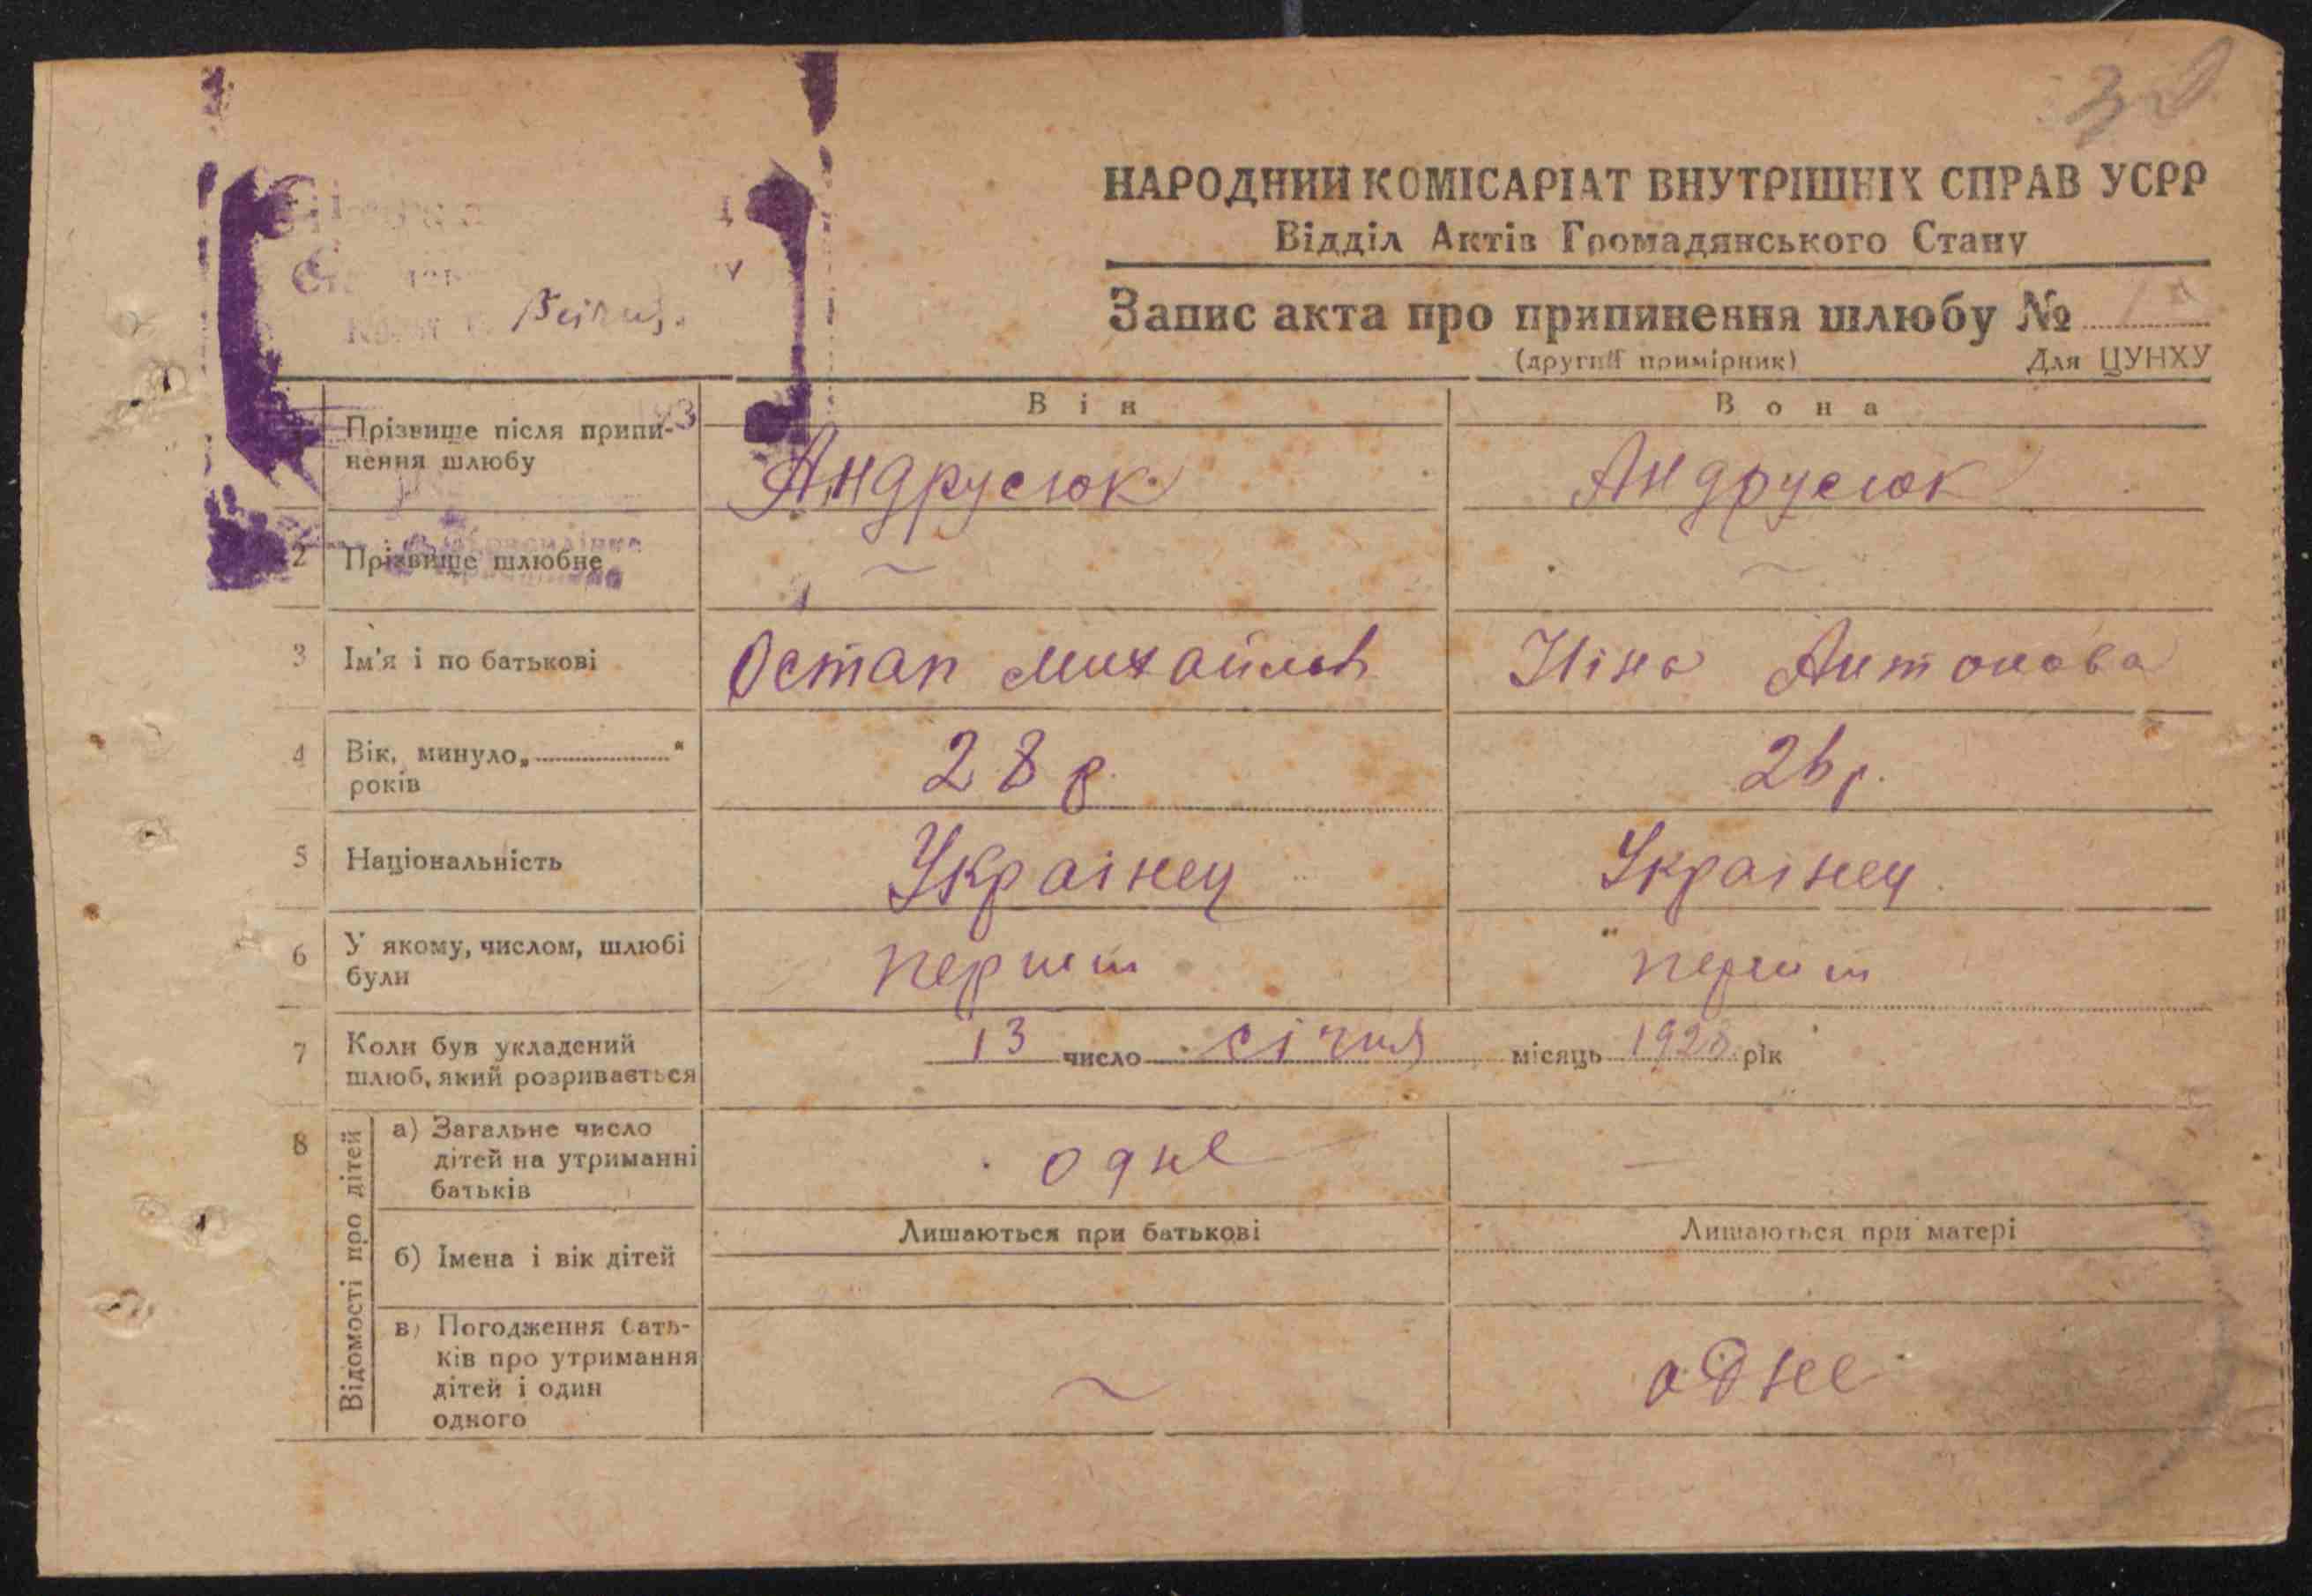 30
НАРОДНИЙ КОМІСАРІАТ ВНУТРІШНІХ СПРАВ УСРР
Відділ Актів Громадянського Стану
Запис акта про припинення шлюбу №
(другий примірник) Для ЦУНХУ
Він Вона
Прізвище після припи-
нення шлюбу
Андрусюк Андрусюк
2 Прізвище шлюбне ~ ~
3 Ім'я і по батькові Остап Михайлов Ніна Антонова
4 Вік, минуло „ “
років
28 р. 26 р.
5 Національність Украінец Украінец
6 У якому, числом, шлюбі
були
перш перш
7 Коли був укладений
шлюб, який розривається
13 число січня місяць 1928 рік
8 Відомості про дітей
а) Загальне число
дітей на утриманні
батьків
одне —
Лишаються при батькові Лишаються при матері
б) Імена і вік дітей
в) Погодження бать-
ків про утримання
дітей і один
одного
~ одне